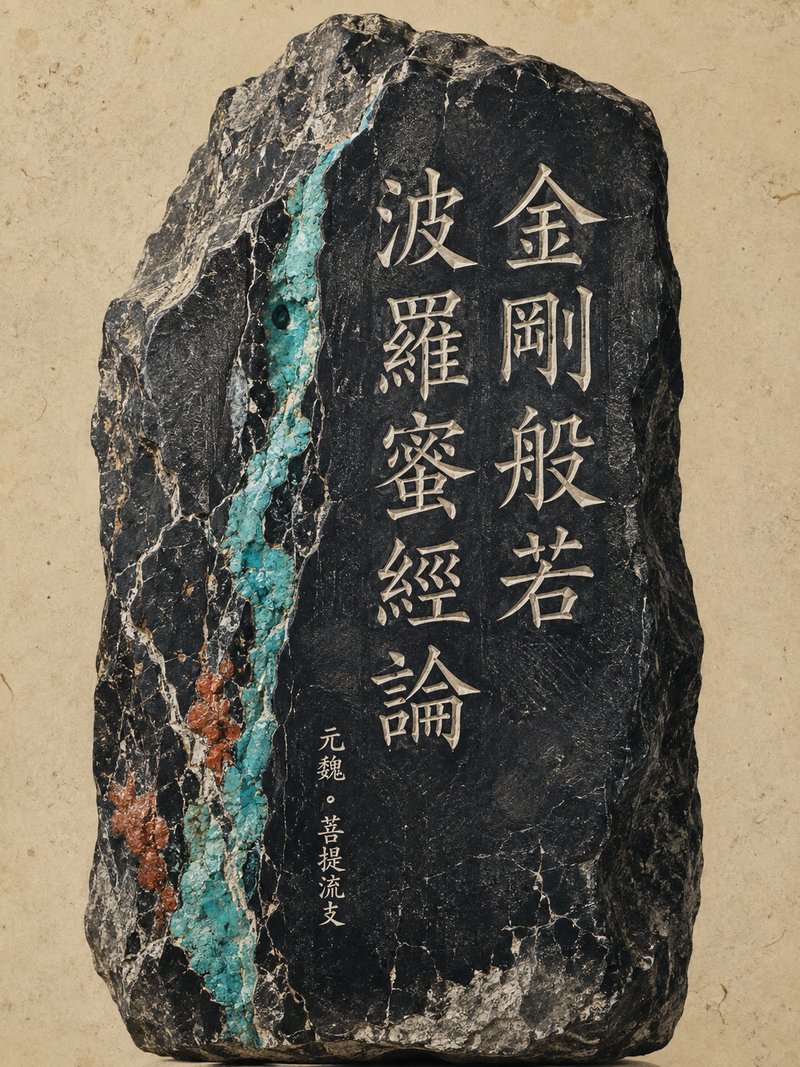 金剛般若
波羅蜜經論
元魏。菩提流支